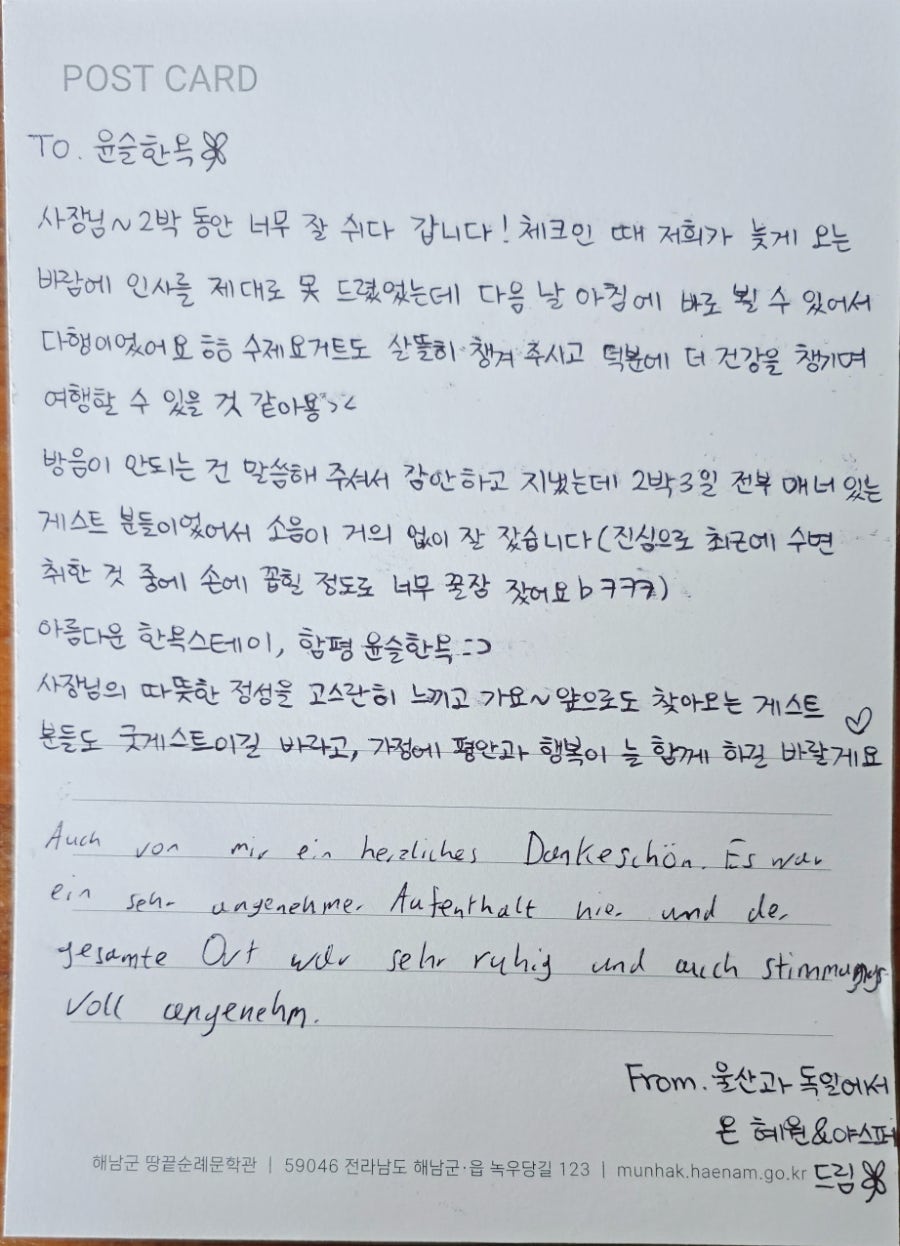 POST CARD
TO. 윤슬한옥
사장님~ 2박 동안 너무 잘 쉬다 갑니다! 체크인 때 저희가 늦게 오는
바람에 인사를 제대로 못 드렸었는데 다음 날 아침에 바로 뵐 수 있어서
다행이었어요 ㅎㅎ 수제요거트도 살뜰히 챙겨 주시고 덕분에 더 건강을 챙기며
여행할 수 있을 것 같아용><
방음이 안되는 건 말씀해 주셔서 감안하고 지냈는데 2박3일 전부 매너있는
게스트 분들이었어서 소음이 거의 없이 잘 잤습니다 (진심으로 최근에 수면
취한 것 중에 손에 꼽힐 정도로 너무 꿀잠 잤어요 b ㅋㅋㅋ)
아름다운 한옥스테이, 함평 윤슬한옥 :)
사장님의 따뜻한 정성을 고스란히 느끼고 가요~ 앞으로도 찾아오는 게스트
분들도 굿게스트이길 바라고, 가정에 평안과 행복이 늘 함께 하길 바랄게요 ♡
Auch von mir ein herzliches Dankeschön. Es war
ein sehr angenehmer Aufenthalt hier und der
gesamte Ort war sehr ruhig und auch stimmungs
voll angenehm.
From. 울산과 독일에서
온 혜원&야스퍼
드림
해남군 땅끝순례문학관 | 59046 전라남도 해남군·읍 녹우당길 123 | munhak.haenam.go.kr